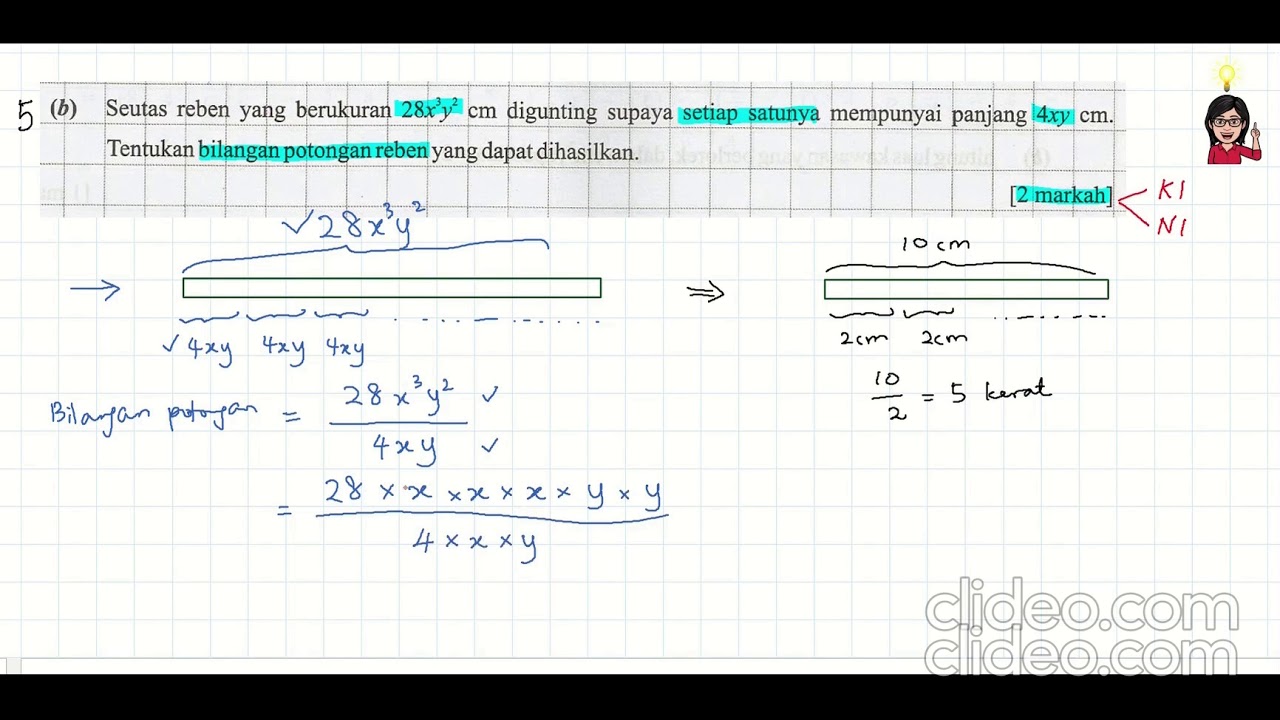 5 (b) Seutas reben yang berukuran 28x³y² cm digunting supaya setiap satunya mempunyai panjang 4xy cm.
Tentukan bilangan potongan reben yang dapat dihasilkan.
[2 markah]
K1
N1
✓ 28x³y²
→
✓ 4xy 4xy 4xy
⇒
10 cm
2cm 2cm
10/2 = 5 kerat
Bilangan potongan = 28x³y² ✓
4xy ✓
= 28 × x × x × x × y × y
4 × x × y
clideo.com
clideo.com